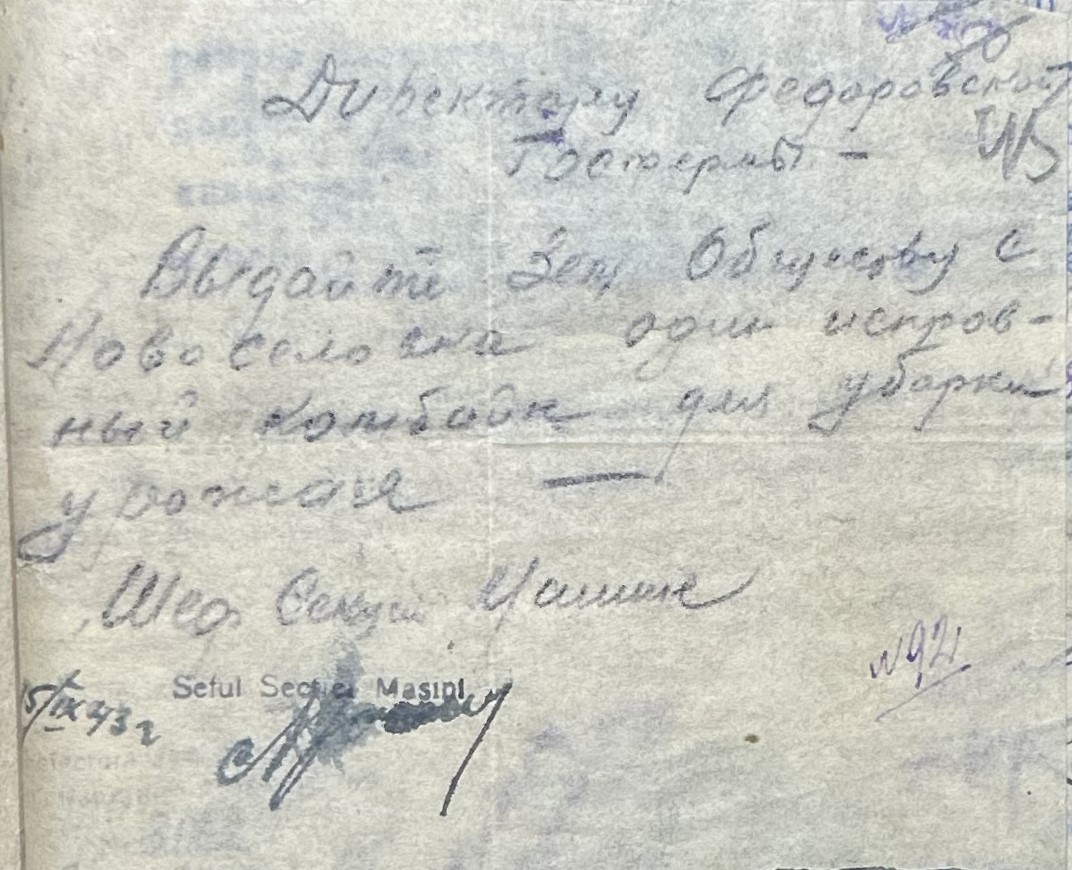 Директору Федоровской
Госфермы –
Выдайте Зем Обществу с
Новоселовка один исправ-
ный комбайн для уборки
урожая —
Шеф Секции Машин
Seful Secției Mașini
15/IX 43 г
N 92